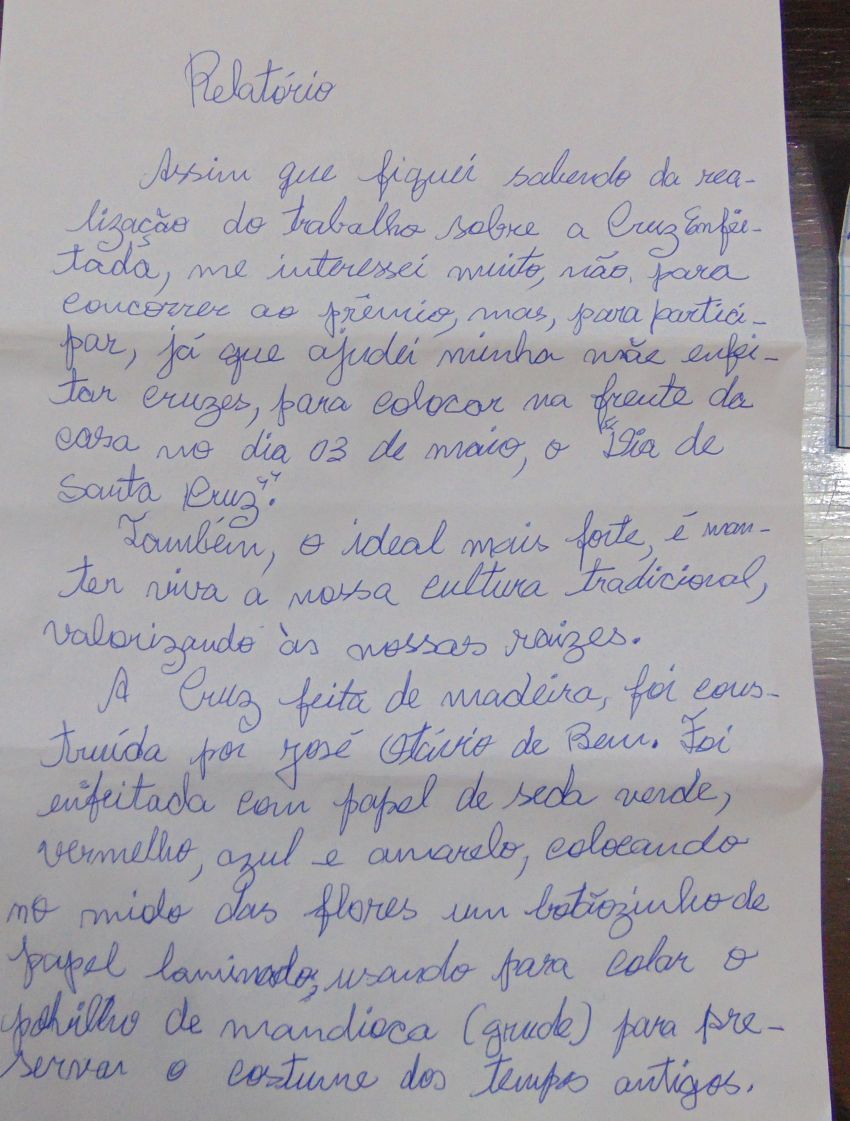 Relatório
Assim que fiquei sabendo da rea-
lização do trabalho sobre a Cruz Enfei-
tada, me interessei muito, não para
concorrer ao prêmio, mas, para partici-
par, já que ajudei minha mãe enfei-
tar cruzes, para colocar na frente da
casa no dia 03 de maio, o "Dia de
Santa Cruz".
Também, o ideal mais forte, é man-
ter viva a nossa cultura tradicional,
valorizando às nossas raizes.
A Cruz feita de madeira, foi cons-
truída por José Otávio de Bem. Foi
enfeitada com papel de seda verde,
vermelho, azul e amarelo, colocando
no miolo das flores um botãozinho de
papel laminado, usando para colar o
polvilho de mandioca (grude) para pre-
servar o costume dos tempos antigos.